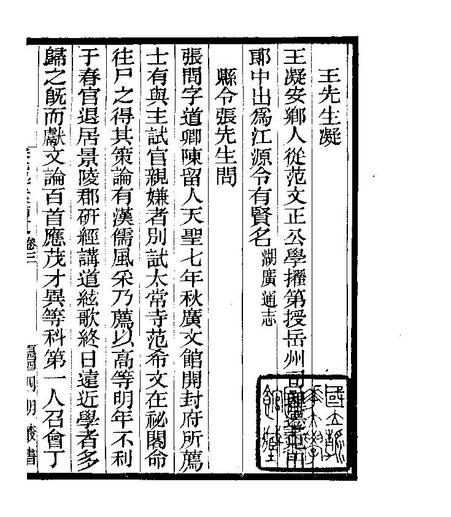 王先生凝
王凝安鄉人從范文正公學擢第授岳州司
郎中出爲江源令有賢名 湖廣通志
縣令張先生問
張問字道卿陳留人天聖七年秋廣文館開封府所薦
士有與主試官親嫌者別試太常寺范希文在祕閣命
往尸之得其策論有漢儒風采乃薦以高等明年不利
于春官退居景陵郡硏經講道絃歌終日遠近學者多
歸之旣而獻文論百首應茂才異等科第一人召會丁
卷三
四明叢書